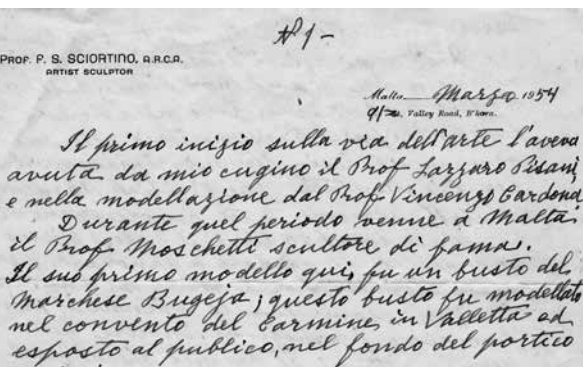 Nº 1-
PROF. P. S. SCIORTINO, A.R.C.A.
ARTIST SCULPTOR
Malta Marzo 1954
Valley Road, B'kara.
Il primo inizio sulla via dell'arte l'aveva
avuta da mio cugino il Prof Lazzaro Pisani
e nella modellazione dal Prof Vincenzo Cardona
Durante quel periodo venne a Malta
il Prof Moschetti scultore di fama.
Il suo primo modello qui, fu un busto del
Marchese Bugeja; questo busto fu modellato
nel convento del Carmine, in Valletta ed
esposto al publico, nel fondo del portico